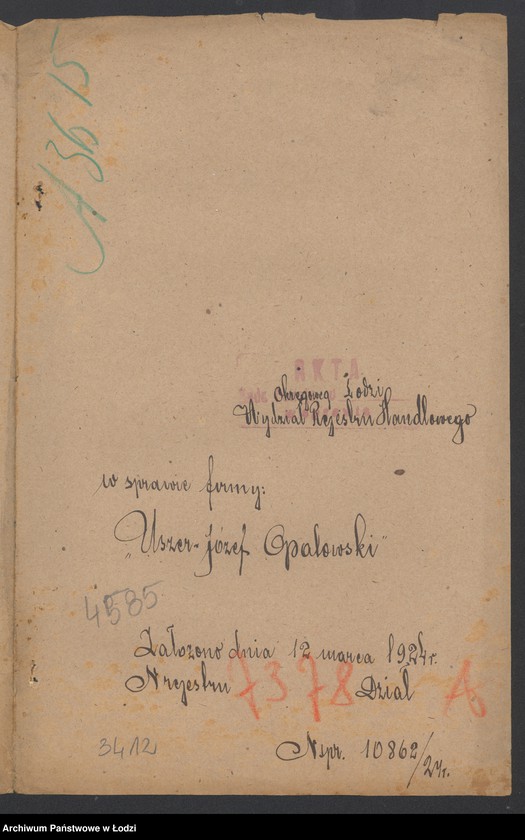 A 3615
AKTA
Okręgoweg Łodzi
Wydział Rejestru Handlowego
w sprawie firmy:
„Uszer-Józef Opalowski"
4585
Założono dnia 12 marca 1924r.
N rejestru 7378 Dział A
3412
N spr. 10862/24r.
Archiwum Państwowe w Łodzi